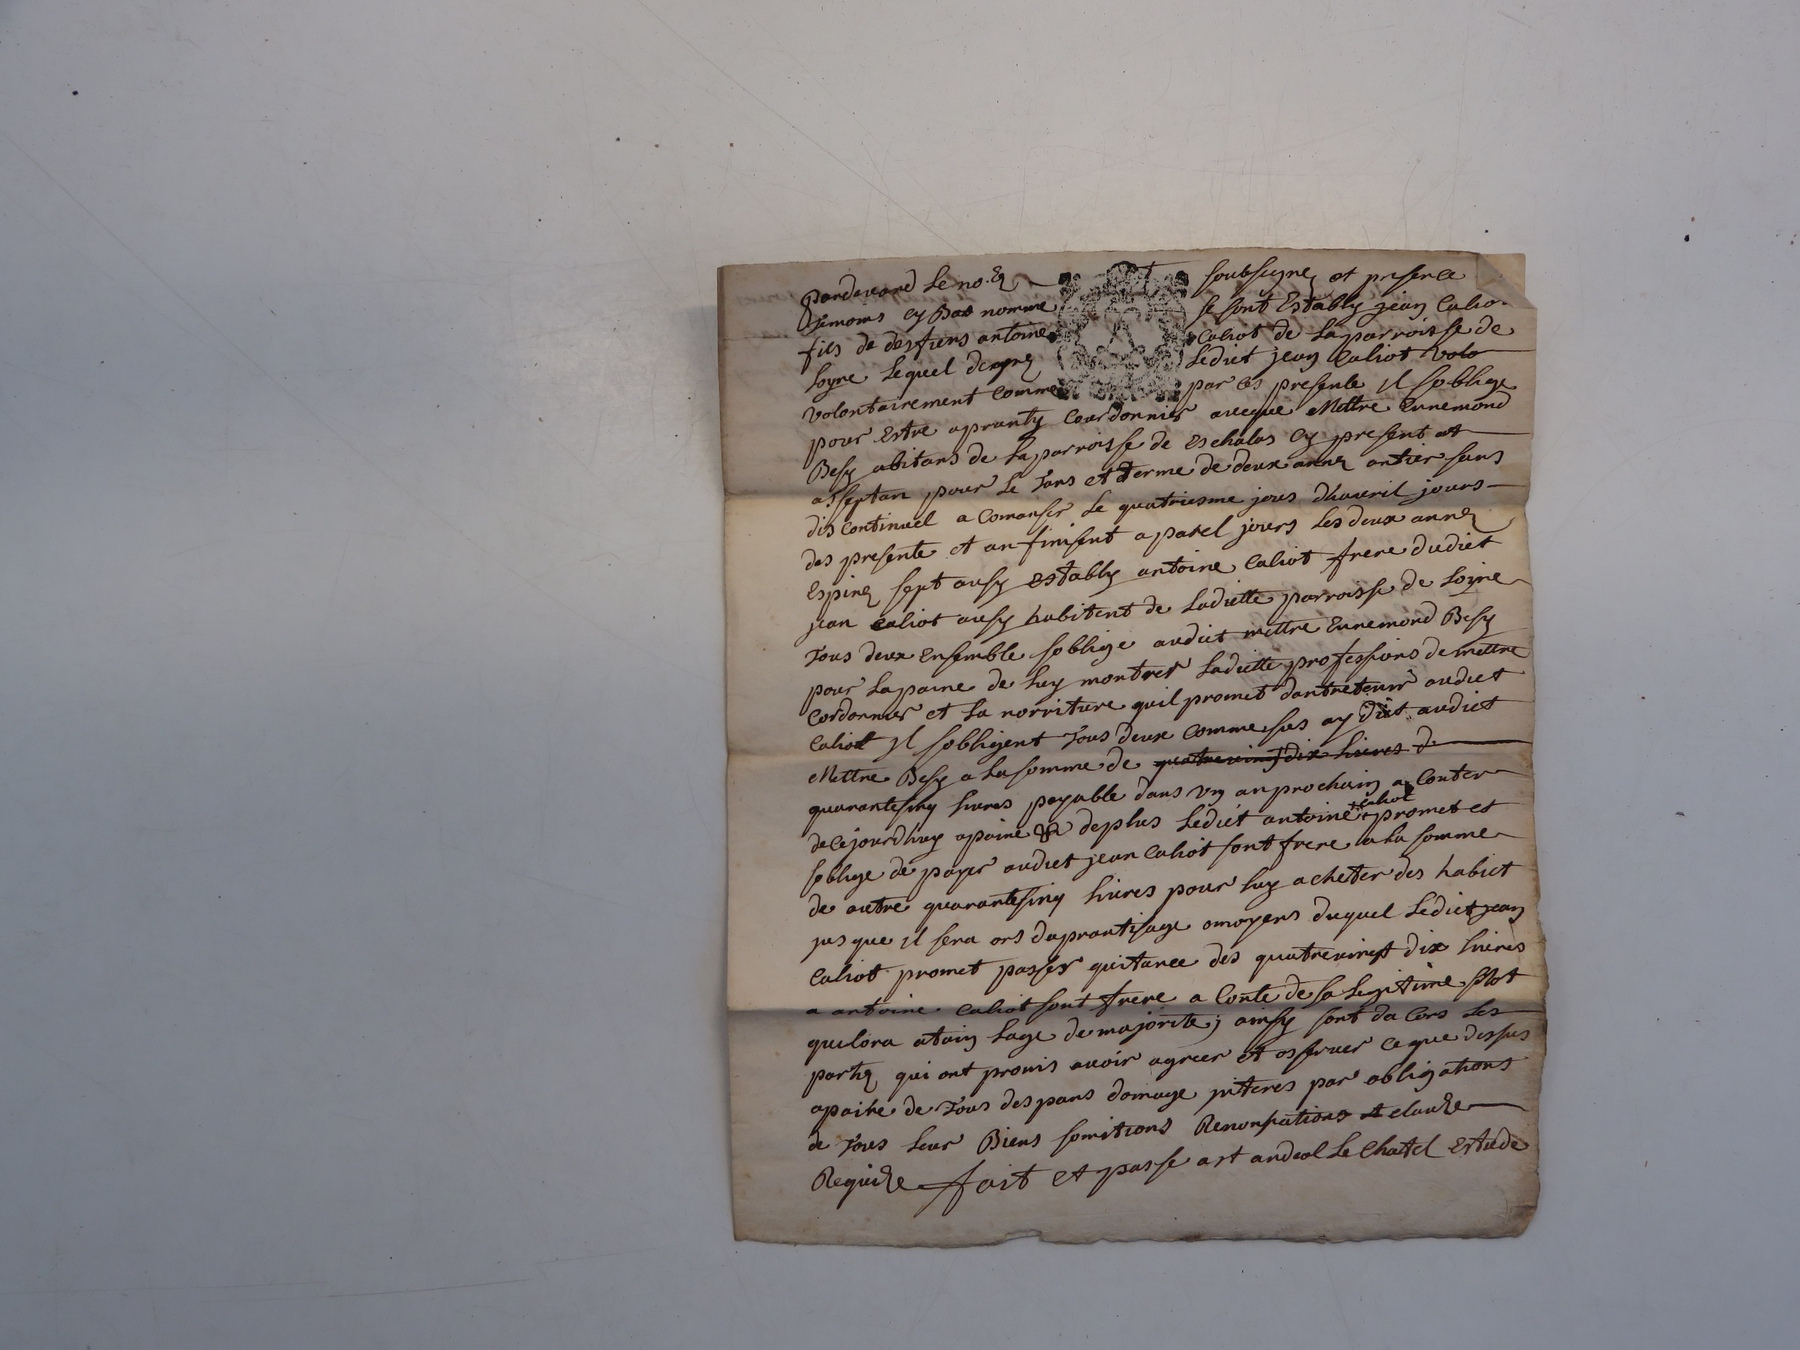 pardevand le no.re soubsigne et presence
temoins cy Bas nomme se sont Estably jean Caliot
fils de desfuns antoine Caliot de la parroisse de
loyre lequel degre ledict jean Caliot volo
volontairement comme par ces presente il soblige
pour Estre apranty Courdonnier avecque Mettre Ennemond
Besy abitans de la parroisse de Eschalas cy present et
asseptan pour le tans et terme de deux anne antier sans
discontinuel a Comanser le quatriesme jous dhauril jours
des presente et an finisent a parel jours les deux anne
Espire sept ausy estably antoine Caliot frere dudict
jean Caliot ausy habitent de ladictte parroisse de loyre
tous deux Ensemble soblige audict mettre Ennemond Besy
pour la paine de luy montrer ladictte professions de mettre
Cordonnier et la norriture quil promet dantretenir audict
Caliot il sobligent tous deux comme sus ay dict audict
Mettre Besy a la somme de quatrevingt dix livres d
quarantesinq livres payable dans un an prochain a Conter
de cejourdhuy apaine & deplus ledict antoine Caliot promet et
soblige de payer audict jean Caliot sont frere a la somme
de autre quarantesinq livres pour luy acheter des habict
jusque il sera ors daprantisage omoyens duquel ledict jean
Caliot promet passer quitance des quatrevingt dix livres
a antoine Caliot sont frere a Conte de sa legitime stot
quilora atain lage de majorite ; ainsy sont da Cors les
partie qui ont promis avoir agreer et oserver ce que dessus
apaihe de tous despans domage interes par obligations
de tous leur Biens somitions Renonsations et clauze
Requize fait et passe a st andeol le Chatel Estude